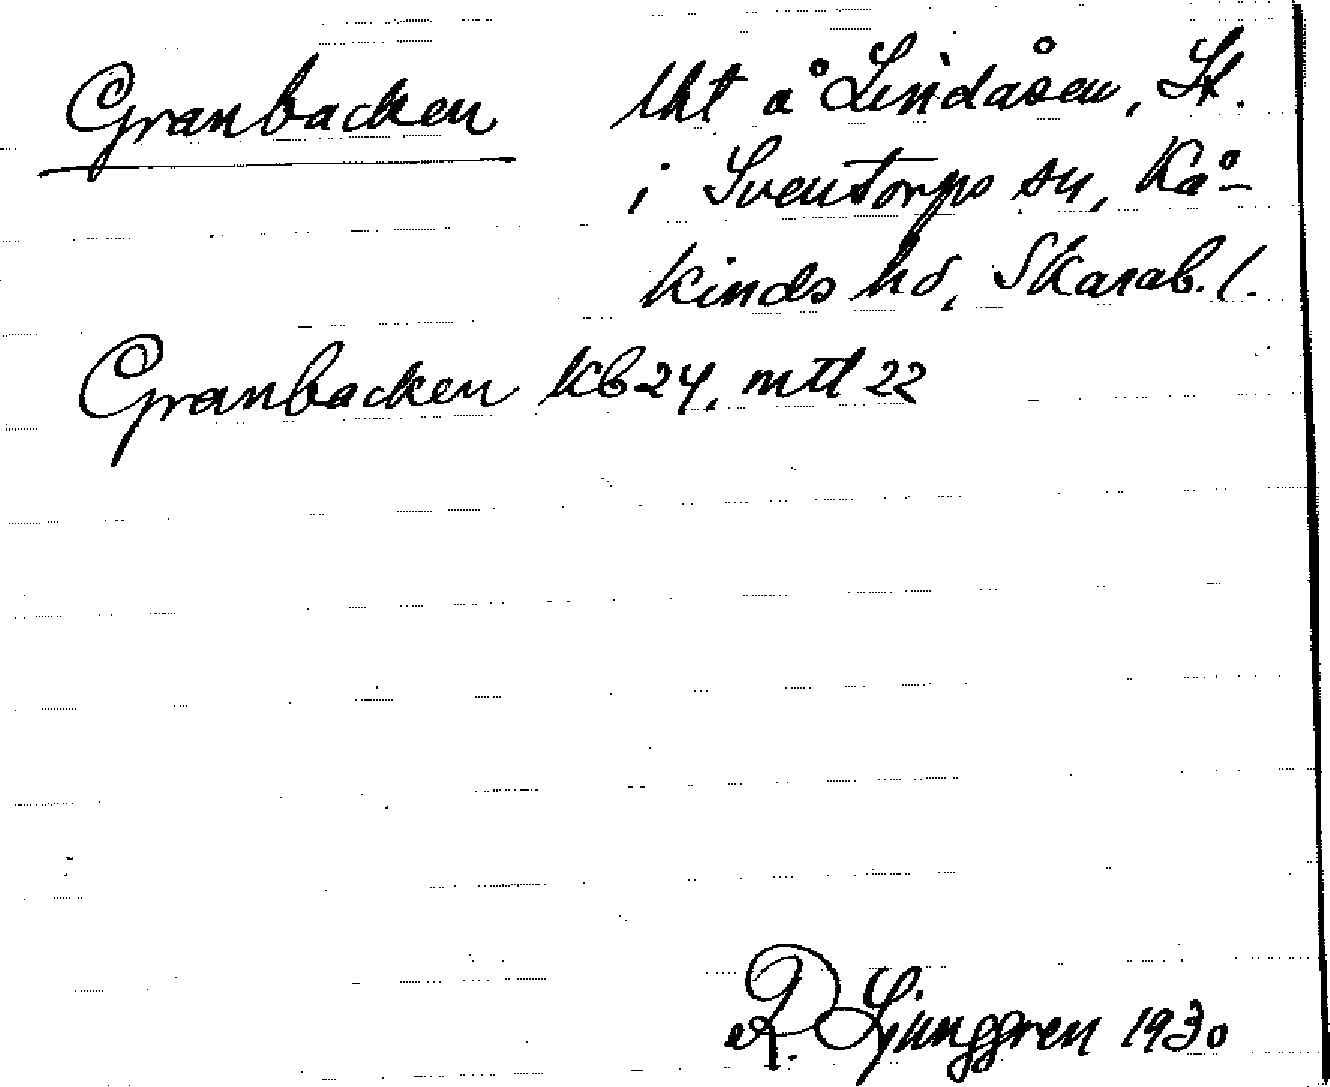 Granbacken lht å Lindåsen, St.
i Sventorps sn, Kå-
kinds hd, Skarab. l.
Granbacken kb 24, mtl 22
R. Ljunggren 1930